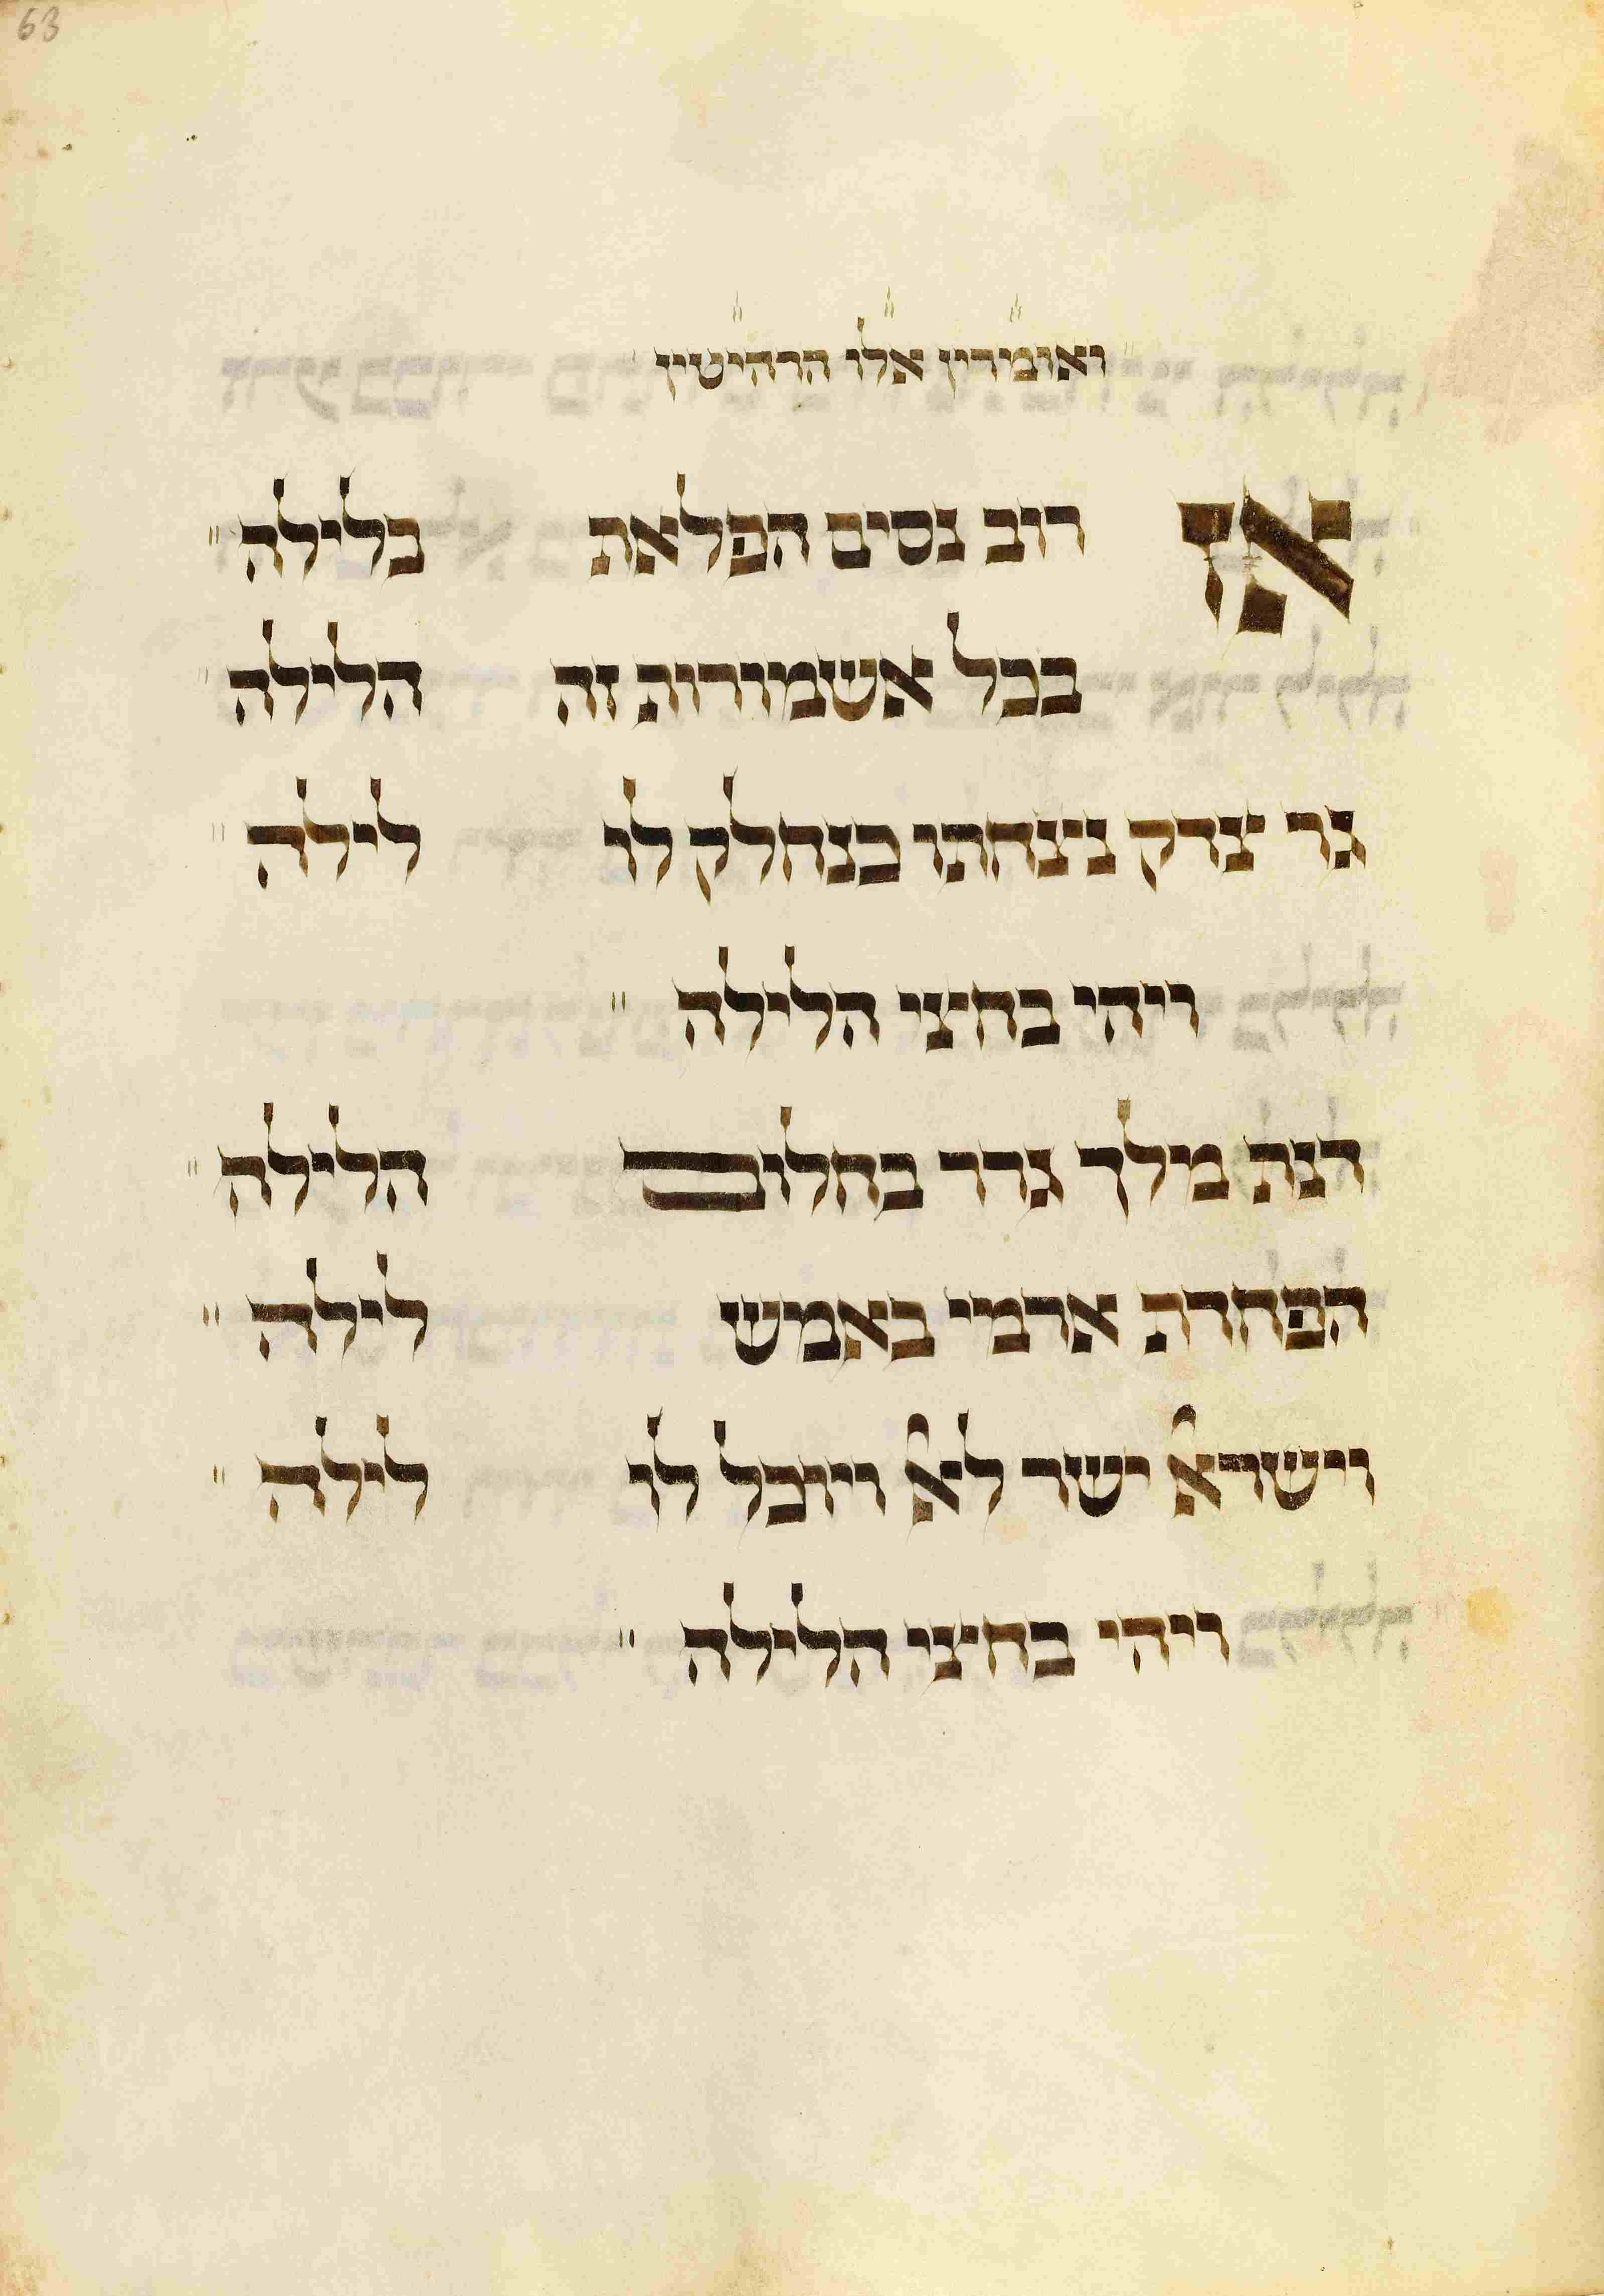 63
ואומרין אלו הרהיטין
אז רוב נסים הפלאת בלילה
בכל אשמורות זה הלילה
גר צדק ניצחתו כנחלק לו לילה
ויהי בחצי הלילה
דנת מלך גרר בחלום הלילה
הפחדת ארמי באמש לילה
וישראל ישר לאל ויוכל לו לילה
ויהי בחצי הלילה